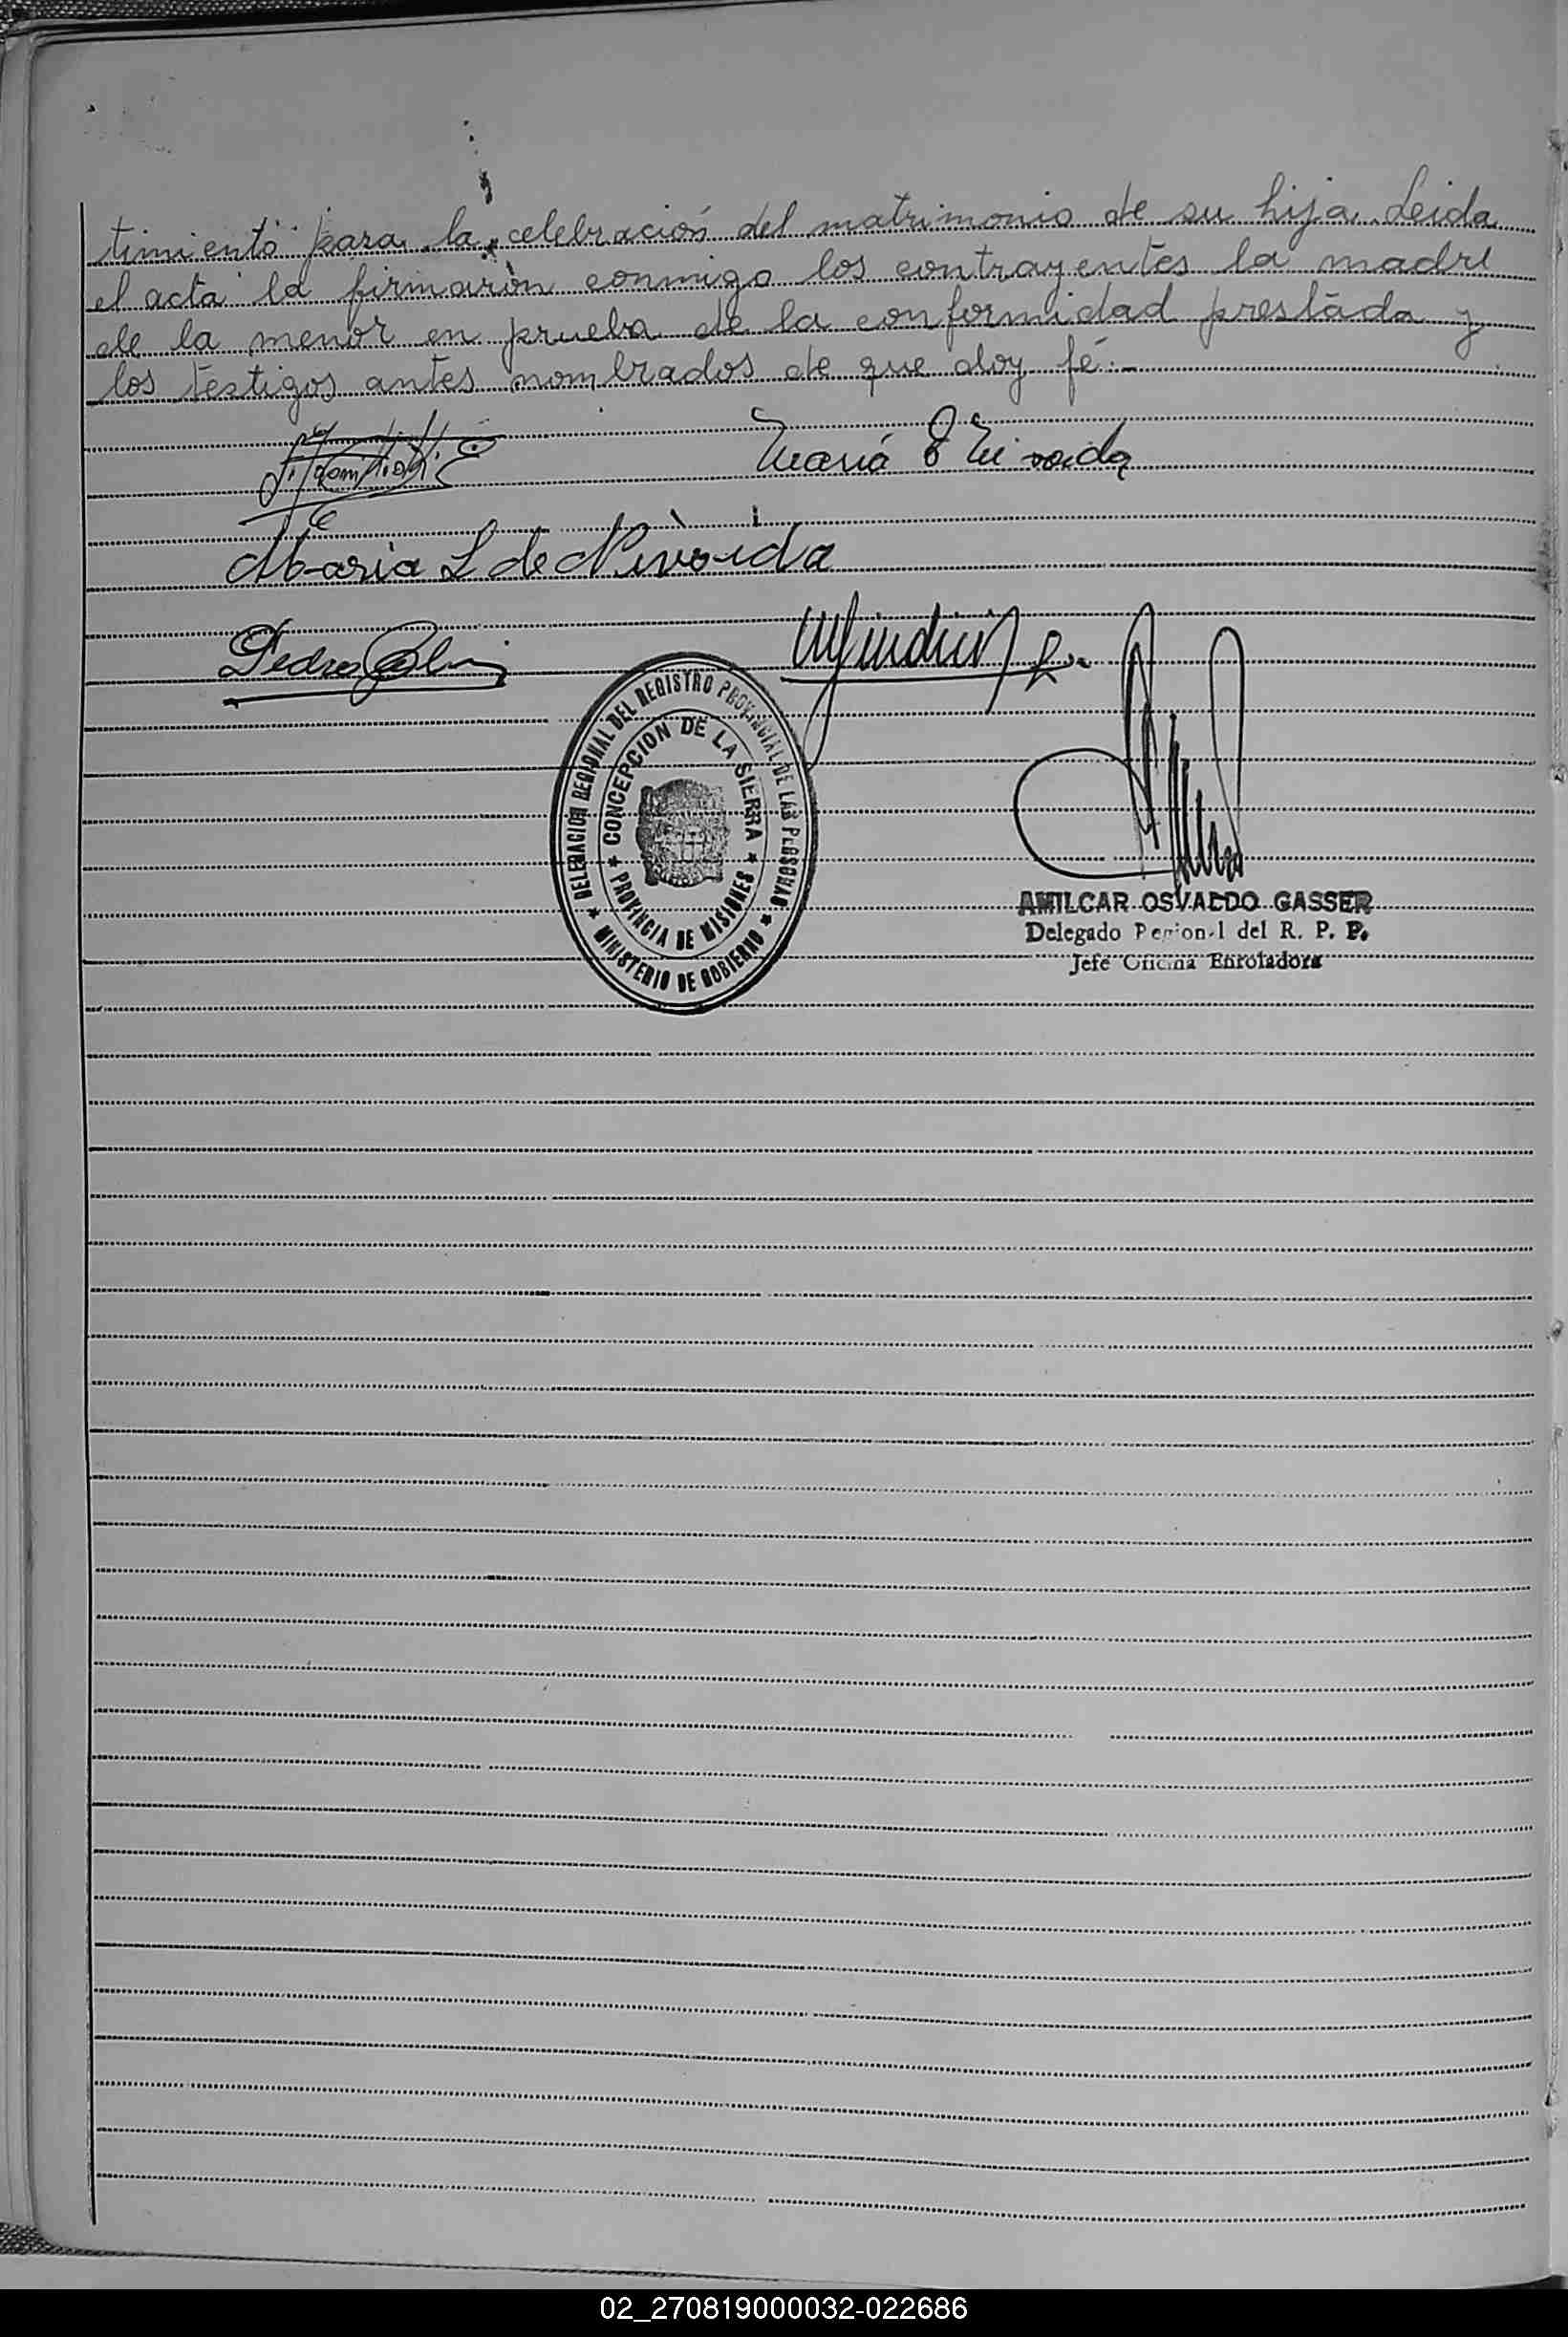 timiento para la celebración del matrimonio de su hija. Leida
el acta la firmarón conmigo los contrayentes la madre
de la menor en prueba de la conformidad prestada y
los testigos antes nombrados de que doy fé.-
María
Maria L de Nivoida
Pedro
DELEGACION REGIONAL DEL REGISTRO PROVINCIAL DE LAS PERSONAS
* CONCEPCION DE LA SIERRA *
PROVINCIA DE MISIONES
* MINISTERIO DE GOBIERNO *
AMILCAR OSVALDO GASSER
Delegado Regional del R. P. P.
Jefe Oficina Enroladora
02_270819000032-022686